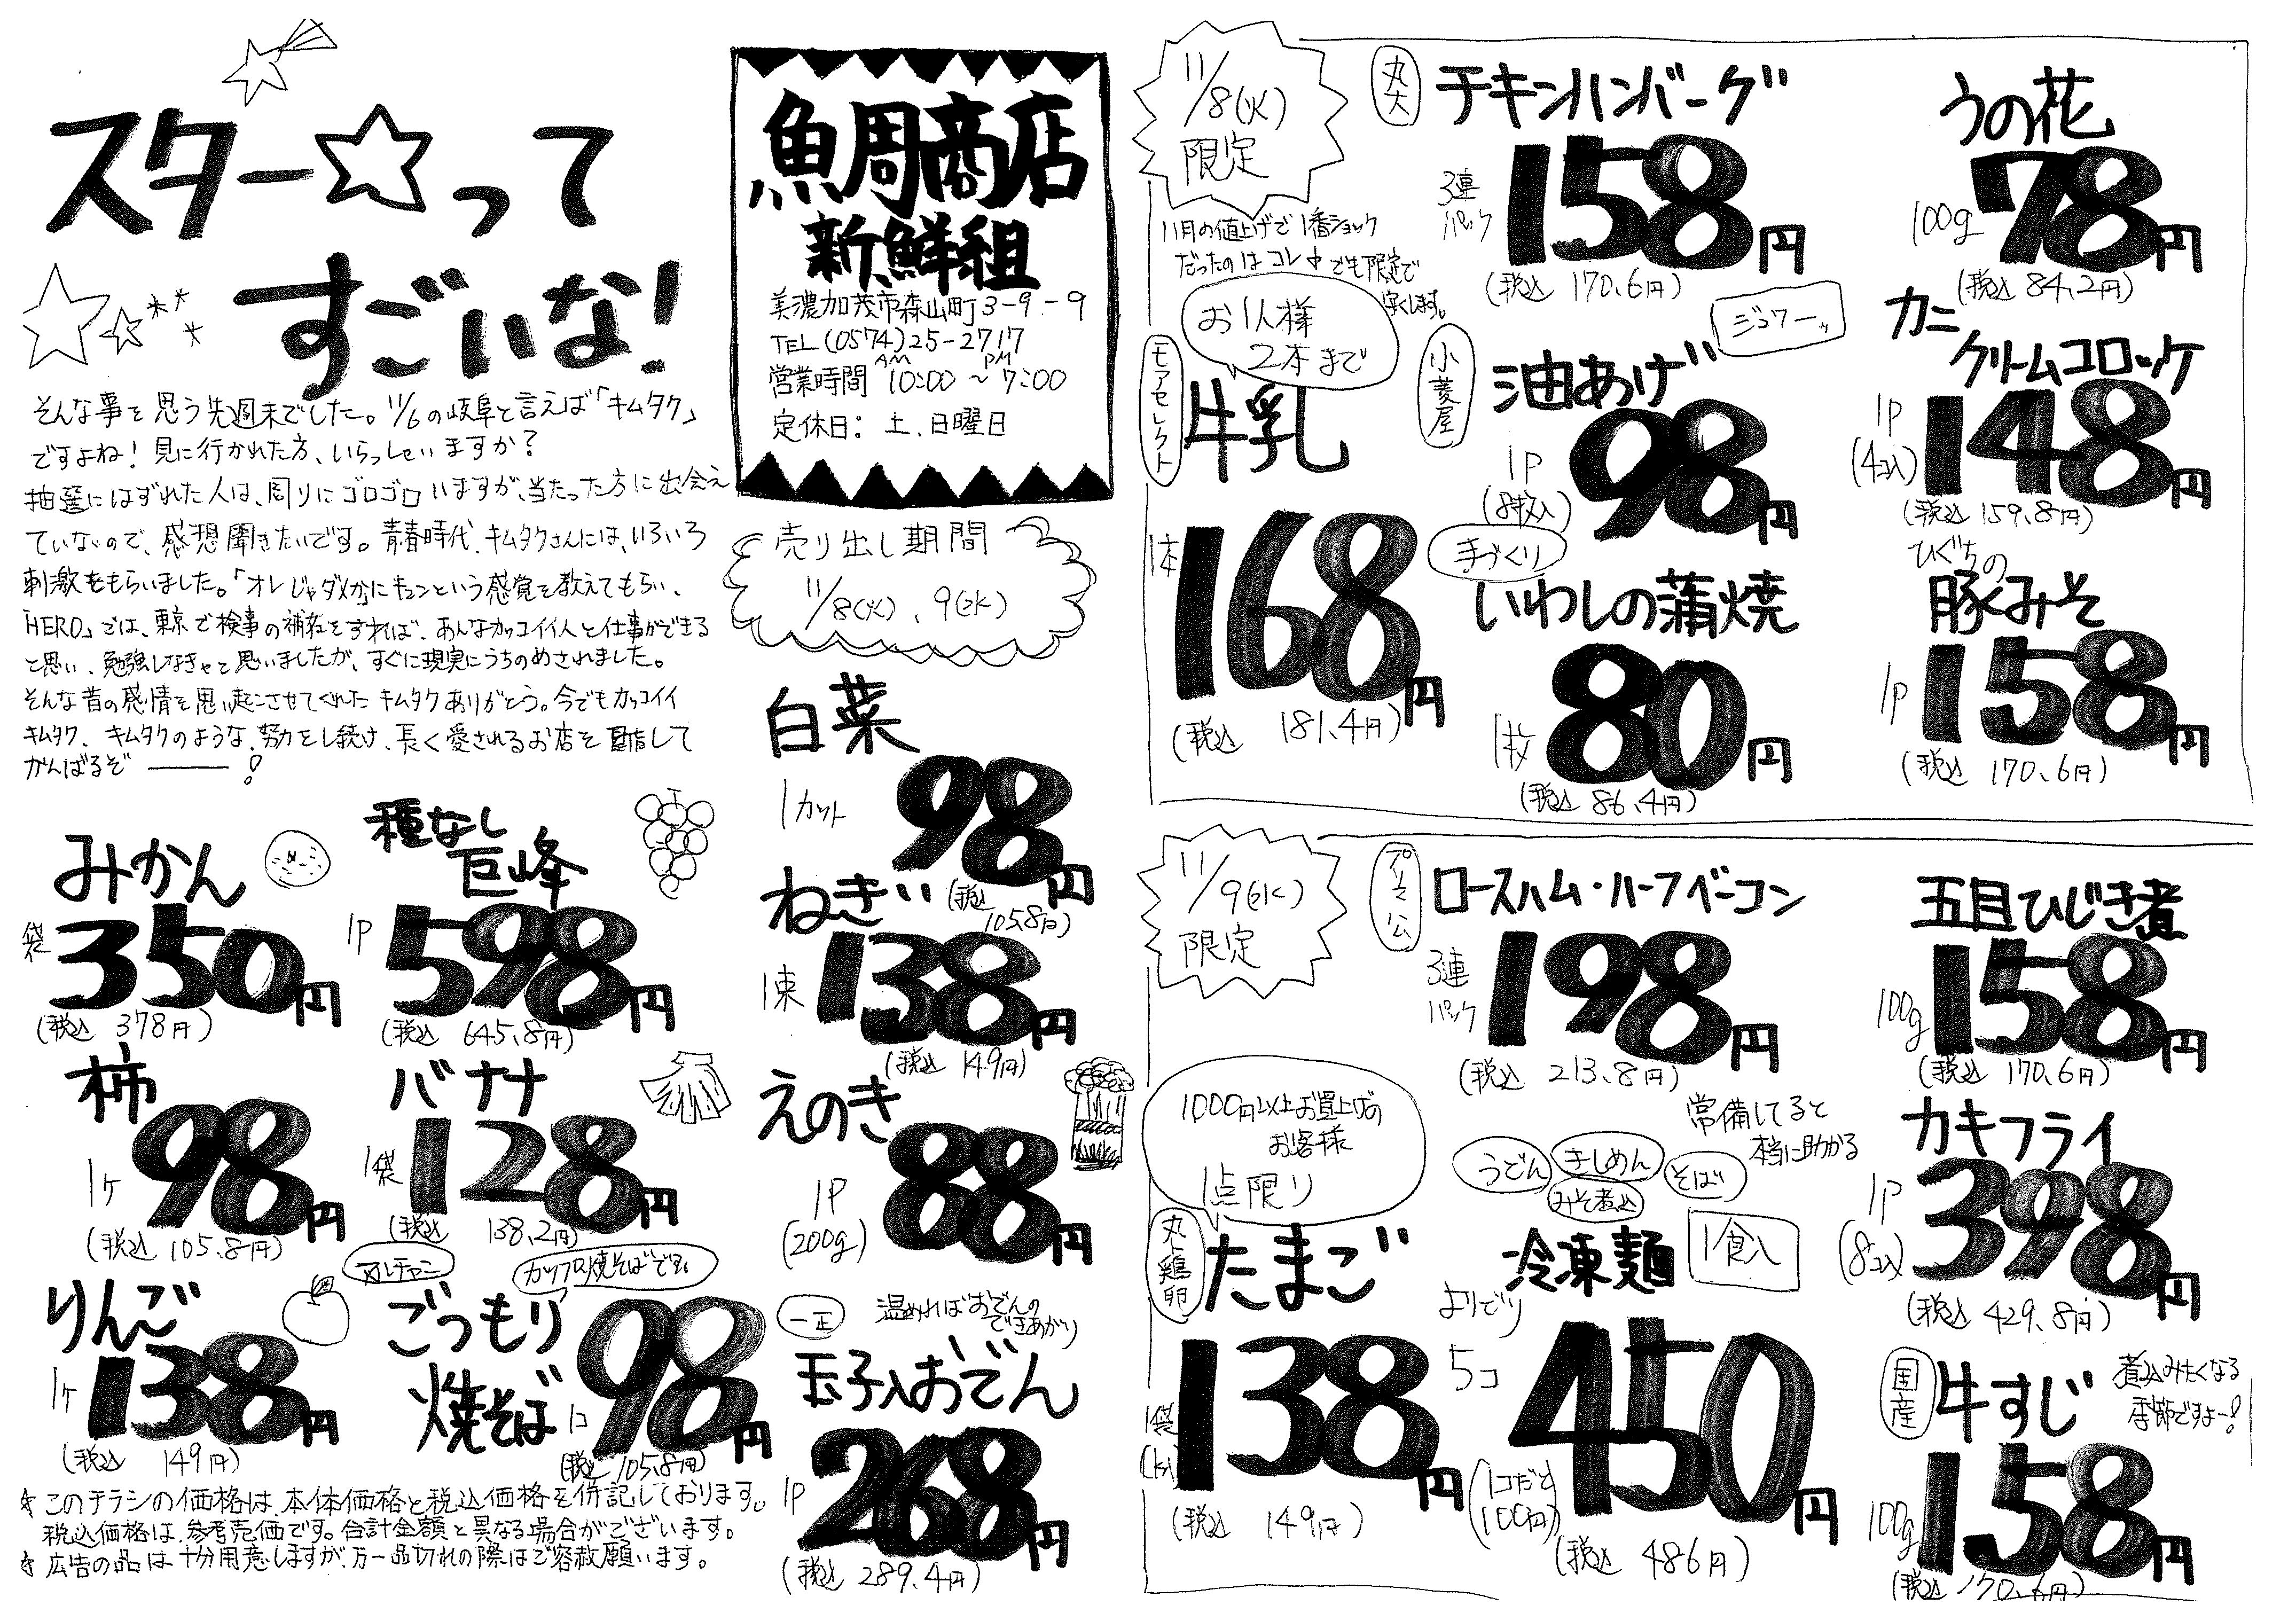 スター☆って
すごいな!
そんな事を思う先週末でした。11/6の岐阜と言えば「キムタク」
ですよね!見に行かれた方、いらっしゃいますか?
抽選にはずれた人は、周りにゴロゴロいますが、当たった方に出会え
ていないので、感想聞きたいです。青春時代、キムタクさんには、いろいろ
刺激をもらいました。「オレじゃダメか」にキュンという感覚を教えてもらい、
「HERO」では、東京で検事の補佐をすれば、あんなカッコイイ人と仕事ができる
と思い、勉強しなきゃと思いましたが、すぐに現実にうちのめされました。
そんな昔の感情を思い起こさせてくれたキムタクありがとう。今でもカッコイイ
キムタク、キムタクのような、努力をし続け、長く愛されるお店を目指して
がんばるぞ――!
魚周商店
新鮮組
美濃加茂市森山町3-9-9
TEL (0574)25-2717
営業時間 AM10:00~PM7:00
定休日: 土、日曜日
売り出し期間
11/8(火)、9(水)
みかん
袋 350円
(税込 378円)
種なし
巨峰
1P 598円
(税込 645.8円)
柿
1ケ 98円
(税込 105.8円)
バナナ
1袋 128円
(税込 138.2円)
りんご
1ケ 138円
(税込 149円)
カップ焼そばです。
ごつもり
焼そば
1コ 98円
(税込 105.8円)
白菜
1カット 98円
(税込 105.8円)
ねぎ
1束 138円
(税込 149円)
えのき
1P
(200g) 88円
一正
温めればおでんの
できあがり
玉子入おでん
1P 268円
(税込 289.4円)
☆このチラシの価格は、本体価格と税込価格を併記しております。
税込価格は、参考売価です。合計金額と異なる場合がございます。
☆広告の品は十分用意しますが、万一品切れの際はご容赦願います。
11/8(火)
限定
11月の値上げで1番ショック
だったのはコレ でも限定で
安くします。
お1人様
2本まで
モアセレクト
牛乳
1本 168円
(税込 181.4円)
丸大
チキンハンバーグ
3連
パック 158円
(税込 170.6円)
小菱屋
油あげ
ジュワーッ
1P
(8枚入) 98円
手づくり
いわしの蒲焼
1枚 80円
(税込 86.4円)
うの花
100g 78円
(税込 84.2円)
カニ
クリームコロッケ
1P
(4コ入) 148円
(税込 159.8円)
ひぐちの
豚みそ
1P 158円
(税込 170.6円)
11/9(水)
限定
プリマハム
ロースハム・ハーフベーコン
3連
パック 198円
(税込 213.8円)
1000円以上お買上げの
お客様
1点限り
丸上鶏卵
たまご
1袋 138円
(税込 149円)
常備してると
本当に助かる
うどん
きしめん
そば
みそ煮込
冷凍麺
1食入
よりどり
5コ 450円
(1コだと
100円)
(税込 486円)
五目ひじき煮
100g 158円
(税込 170.6円)
カキフライ
1P
(8コ入) 398円
(税込 429.8円)
国産
牛すじ
煮込みたくなる
季節ですよー!
100g 158円
(税込 170.6円)